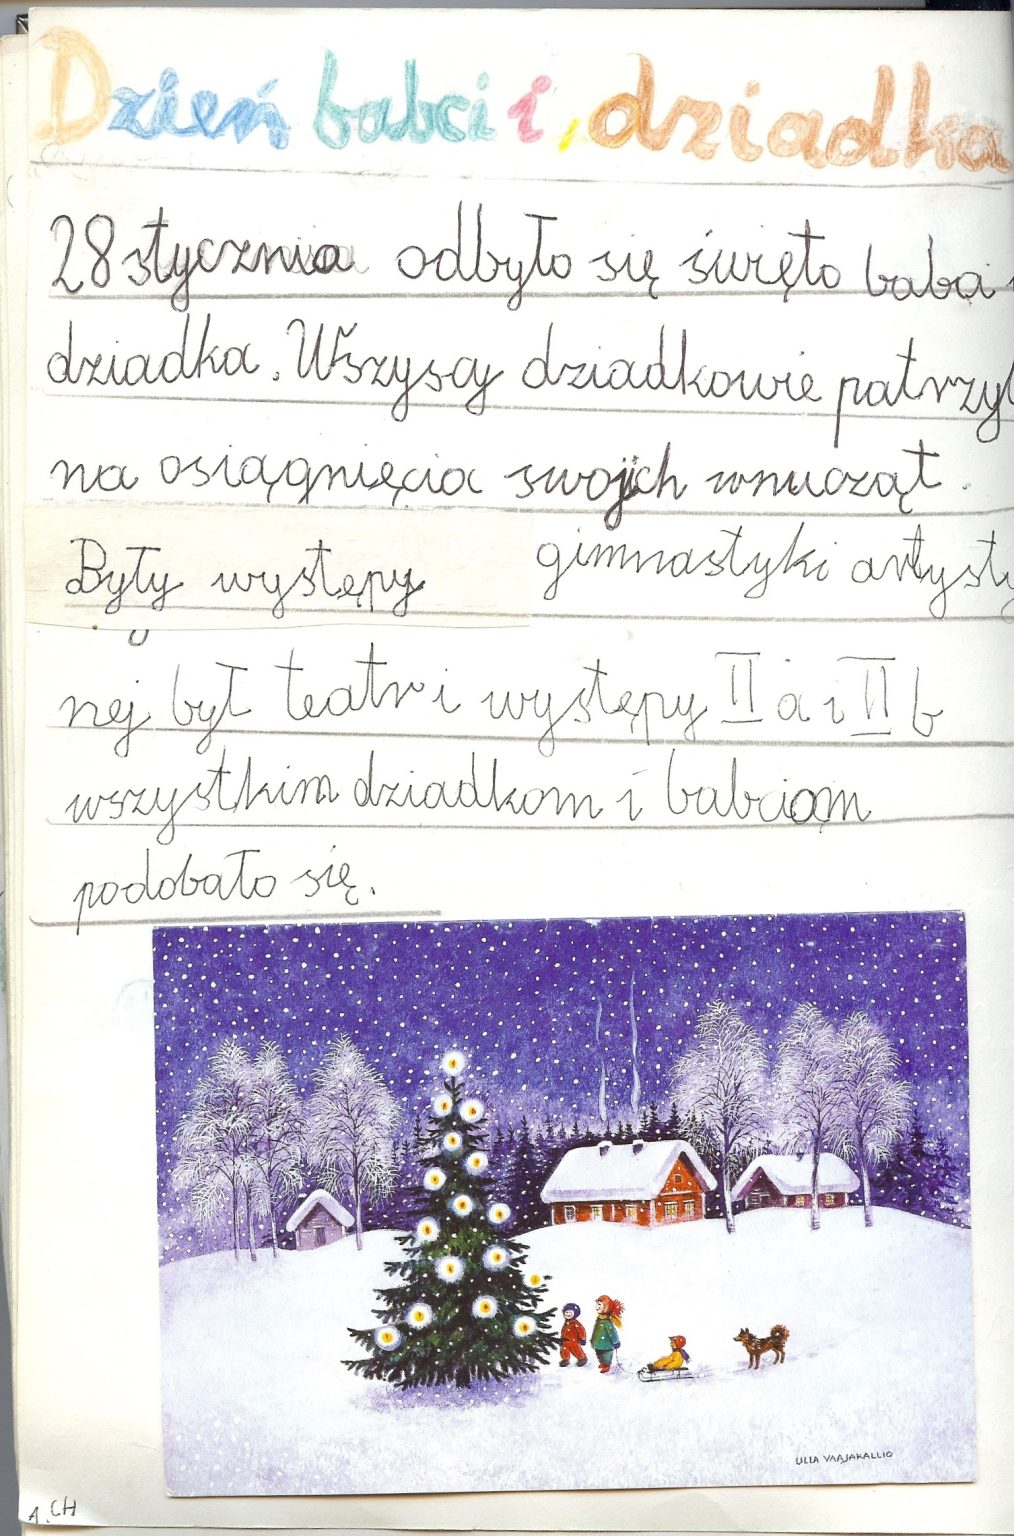 Dzień babci i dziadka
28 stycznia odbyło się święto babci i
dziadka. Wszyscy dziadkowie patrzyl
na osiągnięcia swojich wnucząt.
Były występy gimnastyki artysty
nej był teatr i występy II a i II b
wszystkim dziadkom i babciom
podobało się.
ULLA VAAJAKALLIO
1.CH